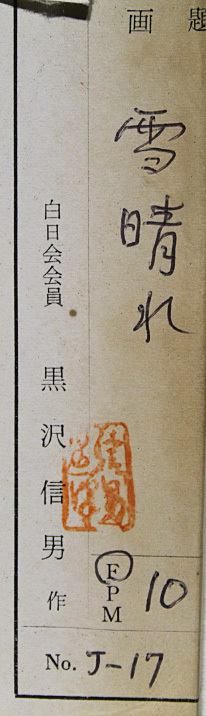 画題
雪晴れ
白日会会員 黒沢信男 作
F 10
P
M
No. J-17